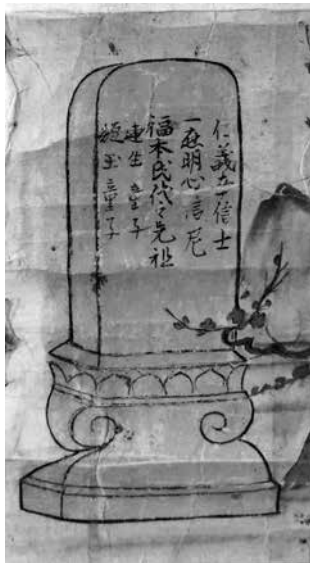 仁義立信士
一应明心信尼
福本氏代々先祖
連生童子
短玉童子